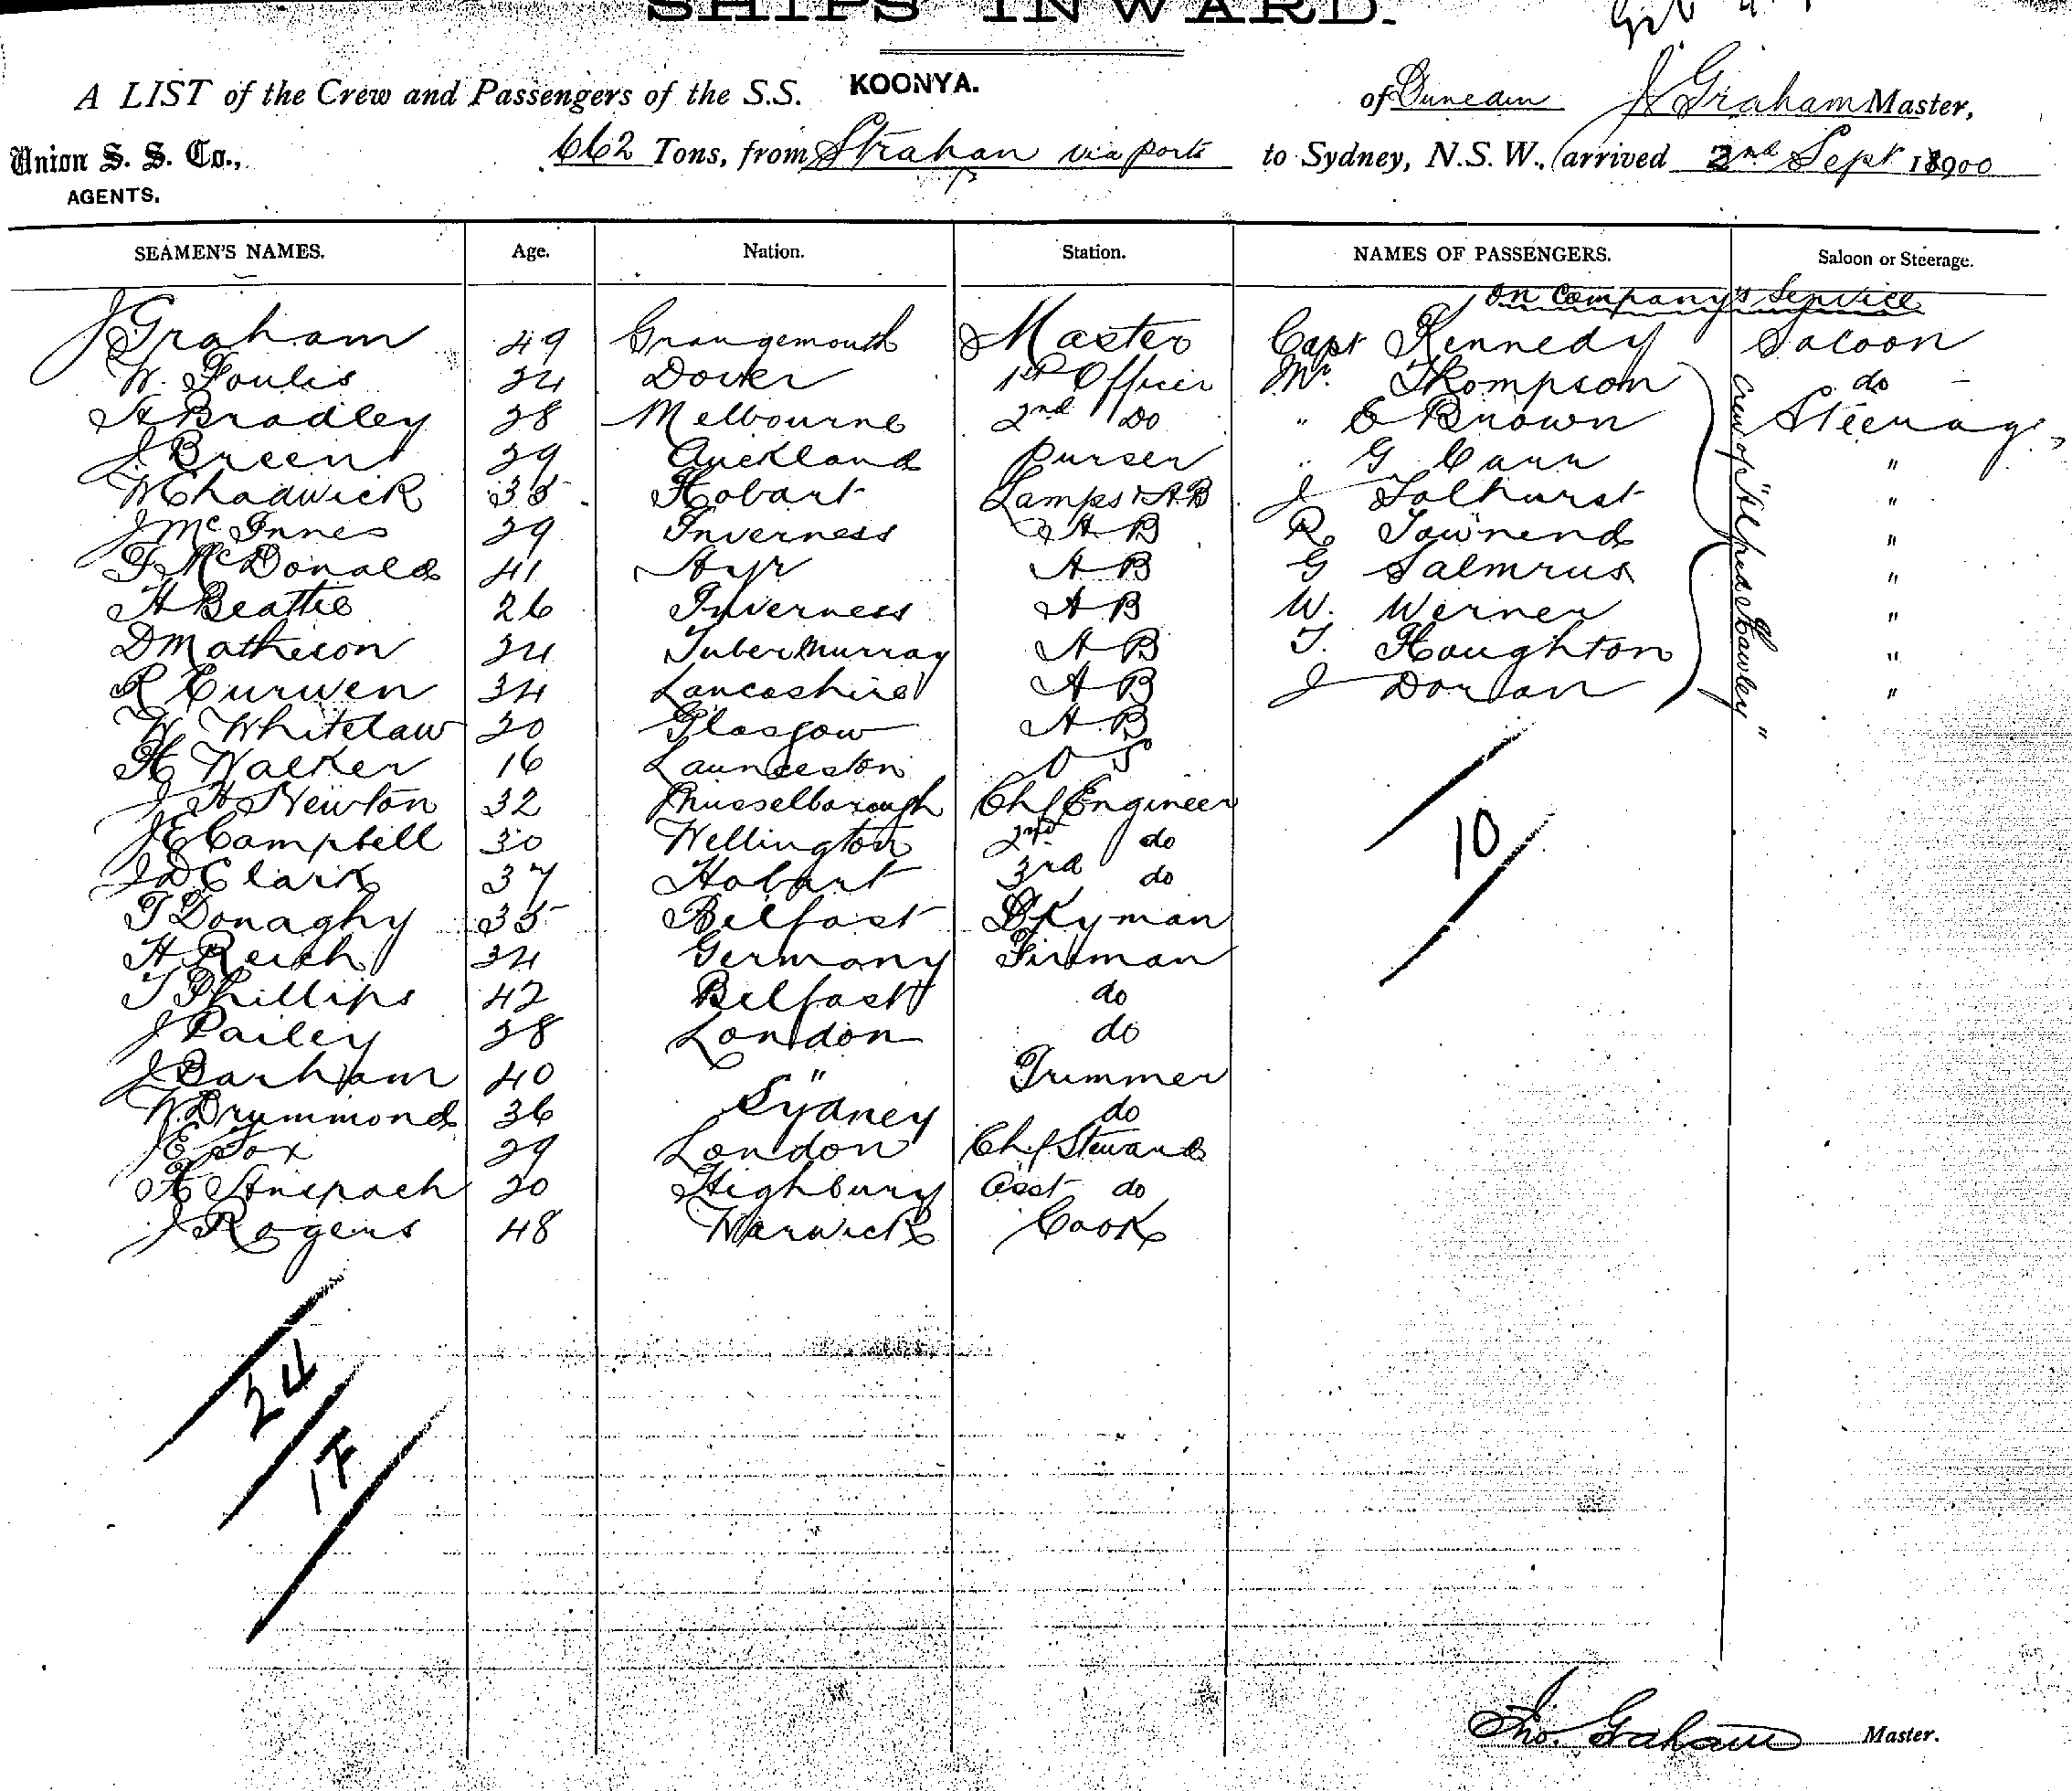 SHIPS INWARD.
A LIST of the Crew and Passengers of the S.S. KOONYA. of Dunedin J Graham Master,
Union S. S. Co., AGENTS. 662 Tons, from Strahan via ports to Sydney, N.S.W., arrived 2nd Sept 1900
SEAMEN'S NAMES. Age. Nation. Station. NAMES OF PASSENGERS. Saloon or Steerage.
On Company's Service
J Graham 49 Grangemouth Master Capt Kennedy Saloon
W. Foulis 24 Dover 1st Officer Mr. Thompson do
A Bradley 28 Melbourne 2nd Do " E Brown Steerage
J Breen 29 Auckland Purser " G. Carr "
W Chadwick 35 Hobart Lamps & AB J Tolhurst "
J McInnes 29 Inverness A B R Townend "
F McDonald 41 Ayr A B G Salmrus "
A Beattie 26 Inverness A B W. Werner "
D Matheson 24 Tubermurray A B T. Houghton "
R Curwen 34 Lancashire A B J Doran "
Crew of "Alfred Hawley"
W Whitelaw 20 Glasgow A.B
H Walker 16 Launceston O S
J H Newton 32 Musselborough Chf Engineer
J E Campbell 30 Wellington 2nd do
J D Clark 37 Hobart 3rd do
T Donaghy 35 Belfast Dkyman
H Reich 24 Germany Firman
T Phillips 42 Belfast do
J Pailey 28 London do
J Barham 40 " Trimmer
W Drummond 36 Sydney do
J E Fox 29 London Chf Steward
H Anspach 20 Highbury Asst do
J Rogers 48 Warwick Cook
10
24
Jno. Graham Master.